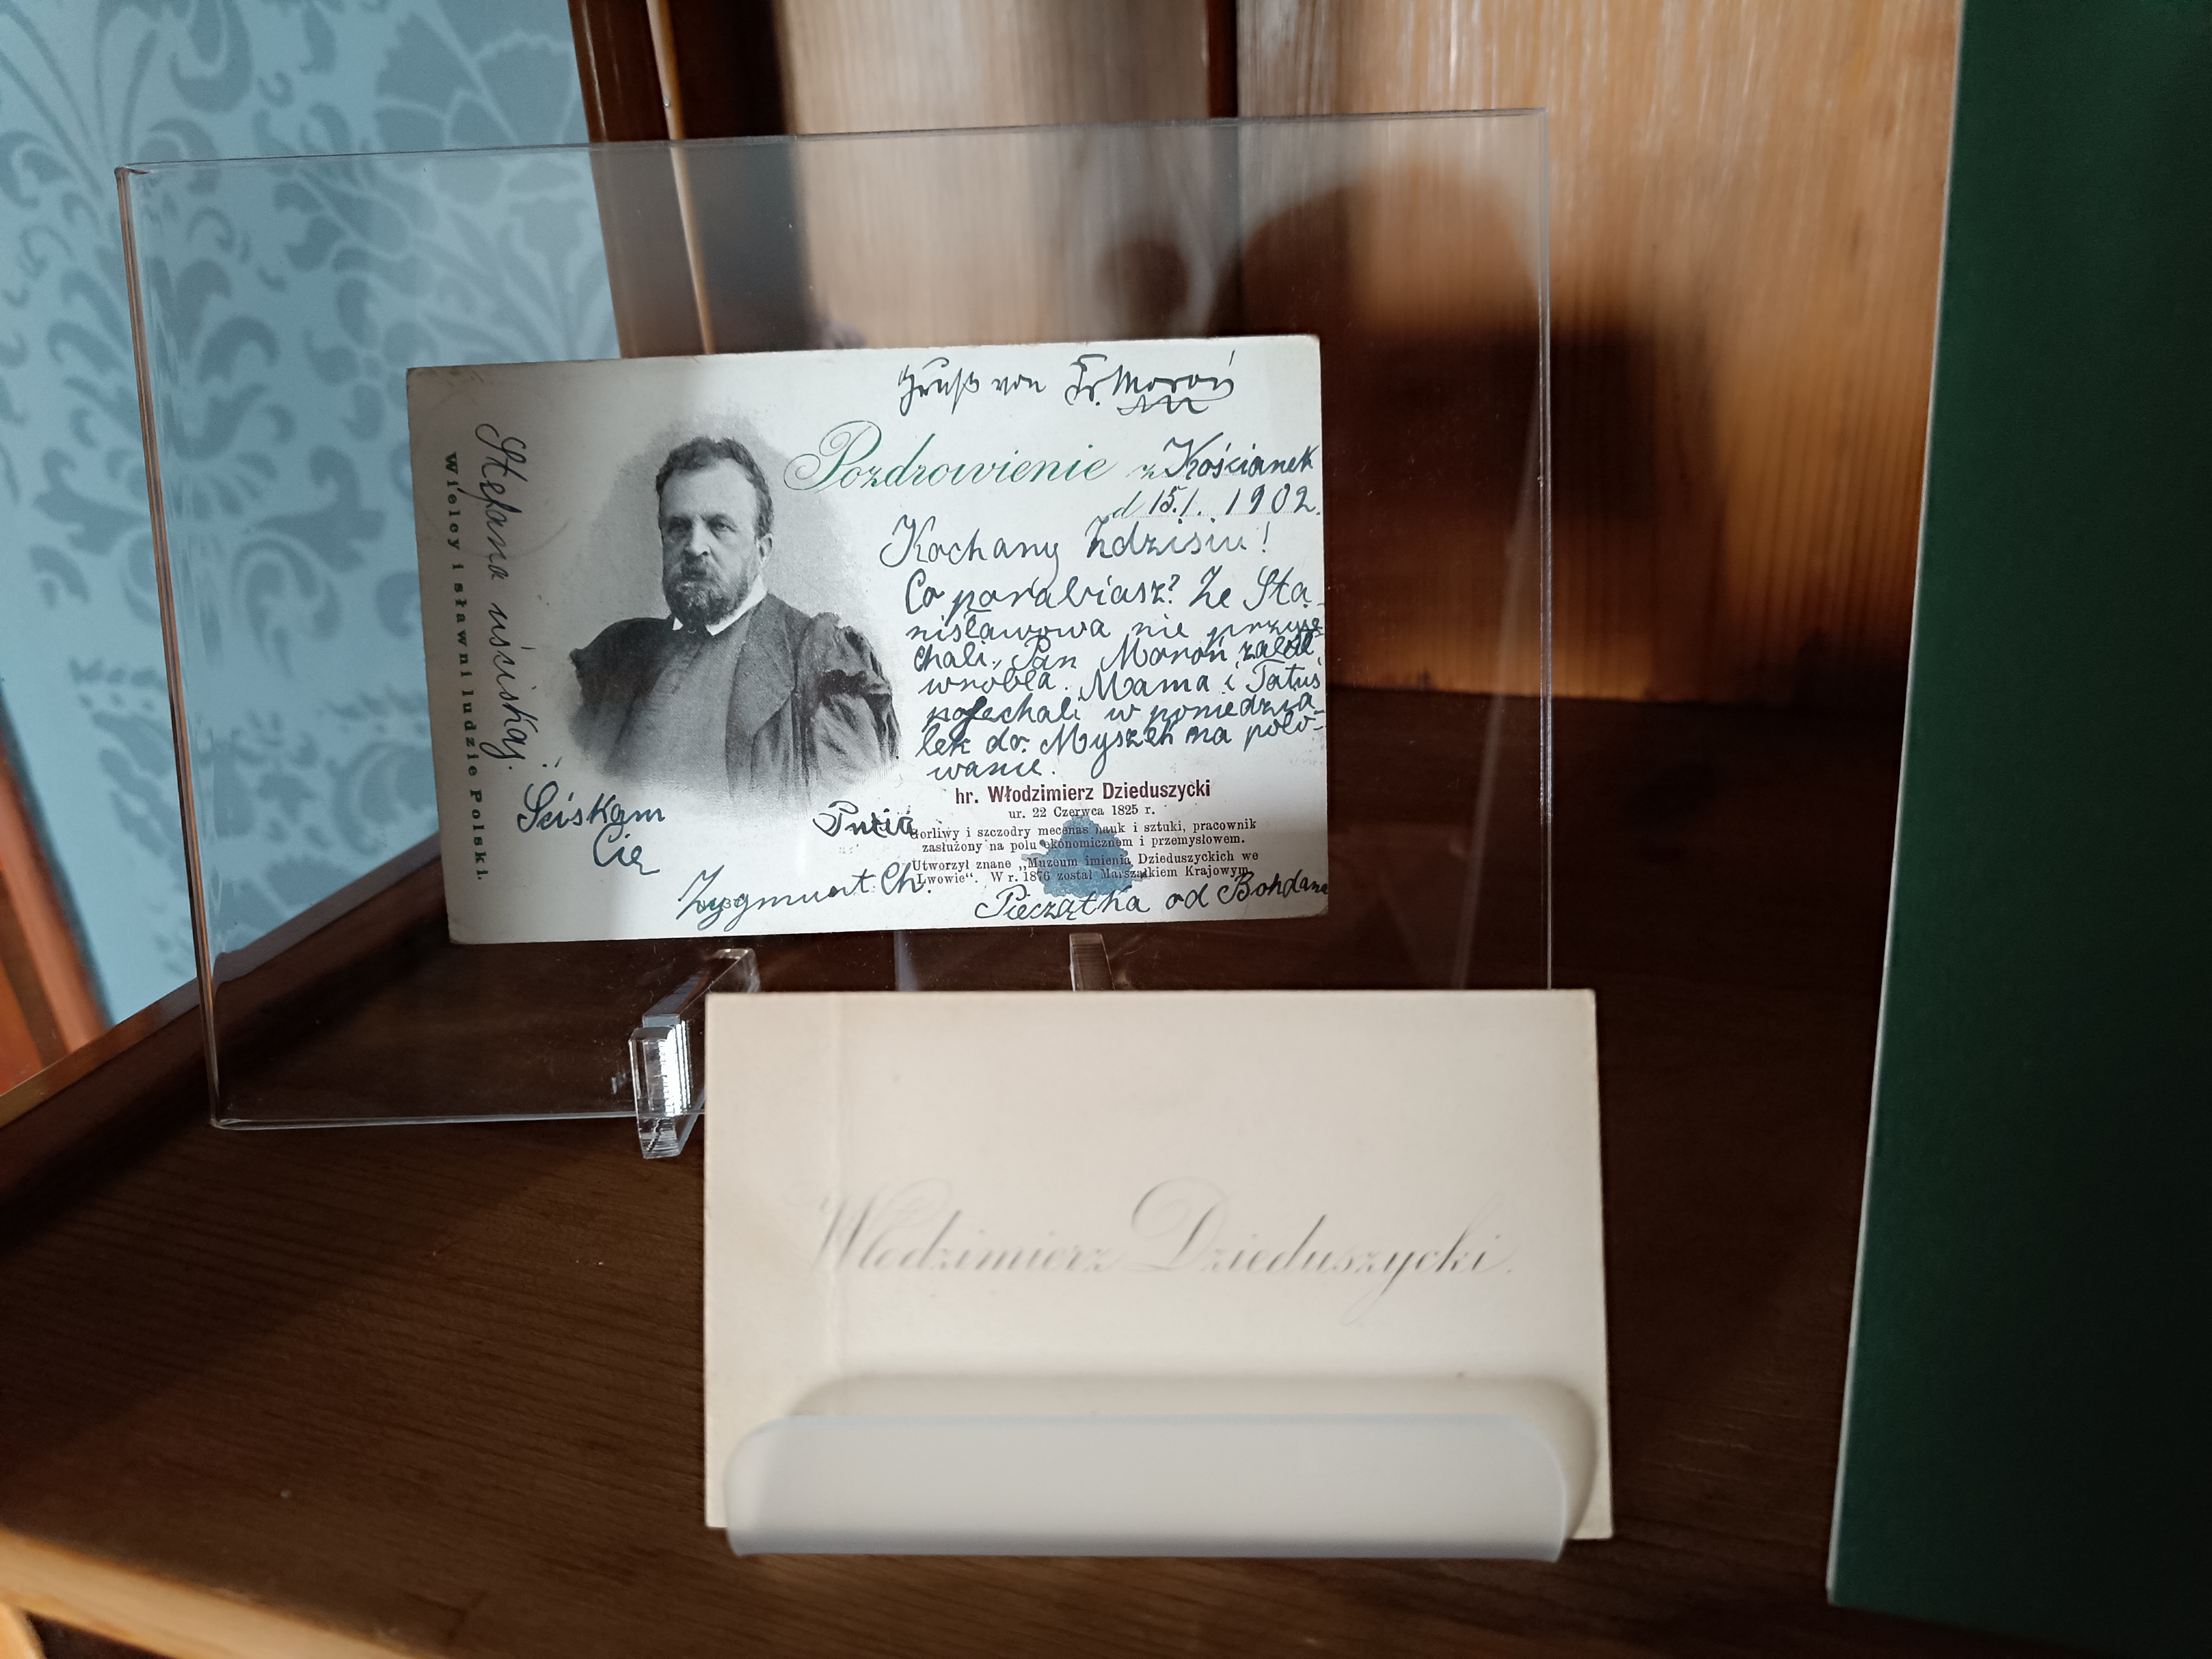 Gruß von Fr. Moroń
Pozdrowienie z Kościanek
d 15.1. 1902.
Kochany Zdzisiu!
Co porabiasz? Ze Sta-
nisławowa nie przyje-
chali. Pan Moroń zabił
wróbla. Mama i Tatuś
pojechali w poniedzia-
łek do Myszek na polo-
wanie.
hr. Włodzimierz Dzieduszycki
ur. 22 Czerwca 1825 r.
Gorliwy i szczodry mecenas nauk i sztuki, pracownik
zasłużony na polu ekonomicznem i przemysłowem.
Utworzył znane „Muzeum imienia Dzieduszyckich we
Lwowie“. W r. 1876 został Marszałkiem Krajowym.
Pieczątka od Bohdana
Stefana uściskaj.
Wielcy i sławni ludzie Polski.
Ściskam
Cię
Zygmunt Ch.
Włodzimierz Dzieduszycki.